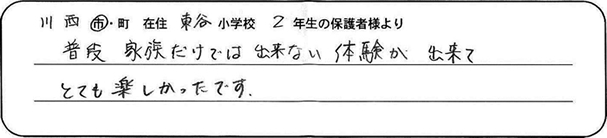 川西市・町 在住 東谷小学校 2年生の保護者様より
普段 家族だけでは 出来ない 体験が 出来て
とても 楽しかったです.